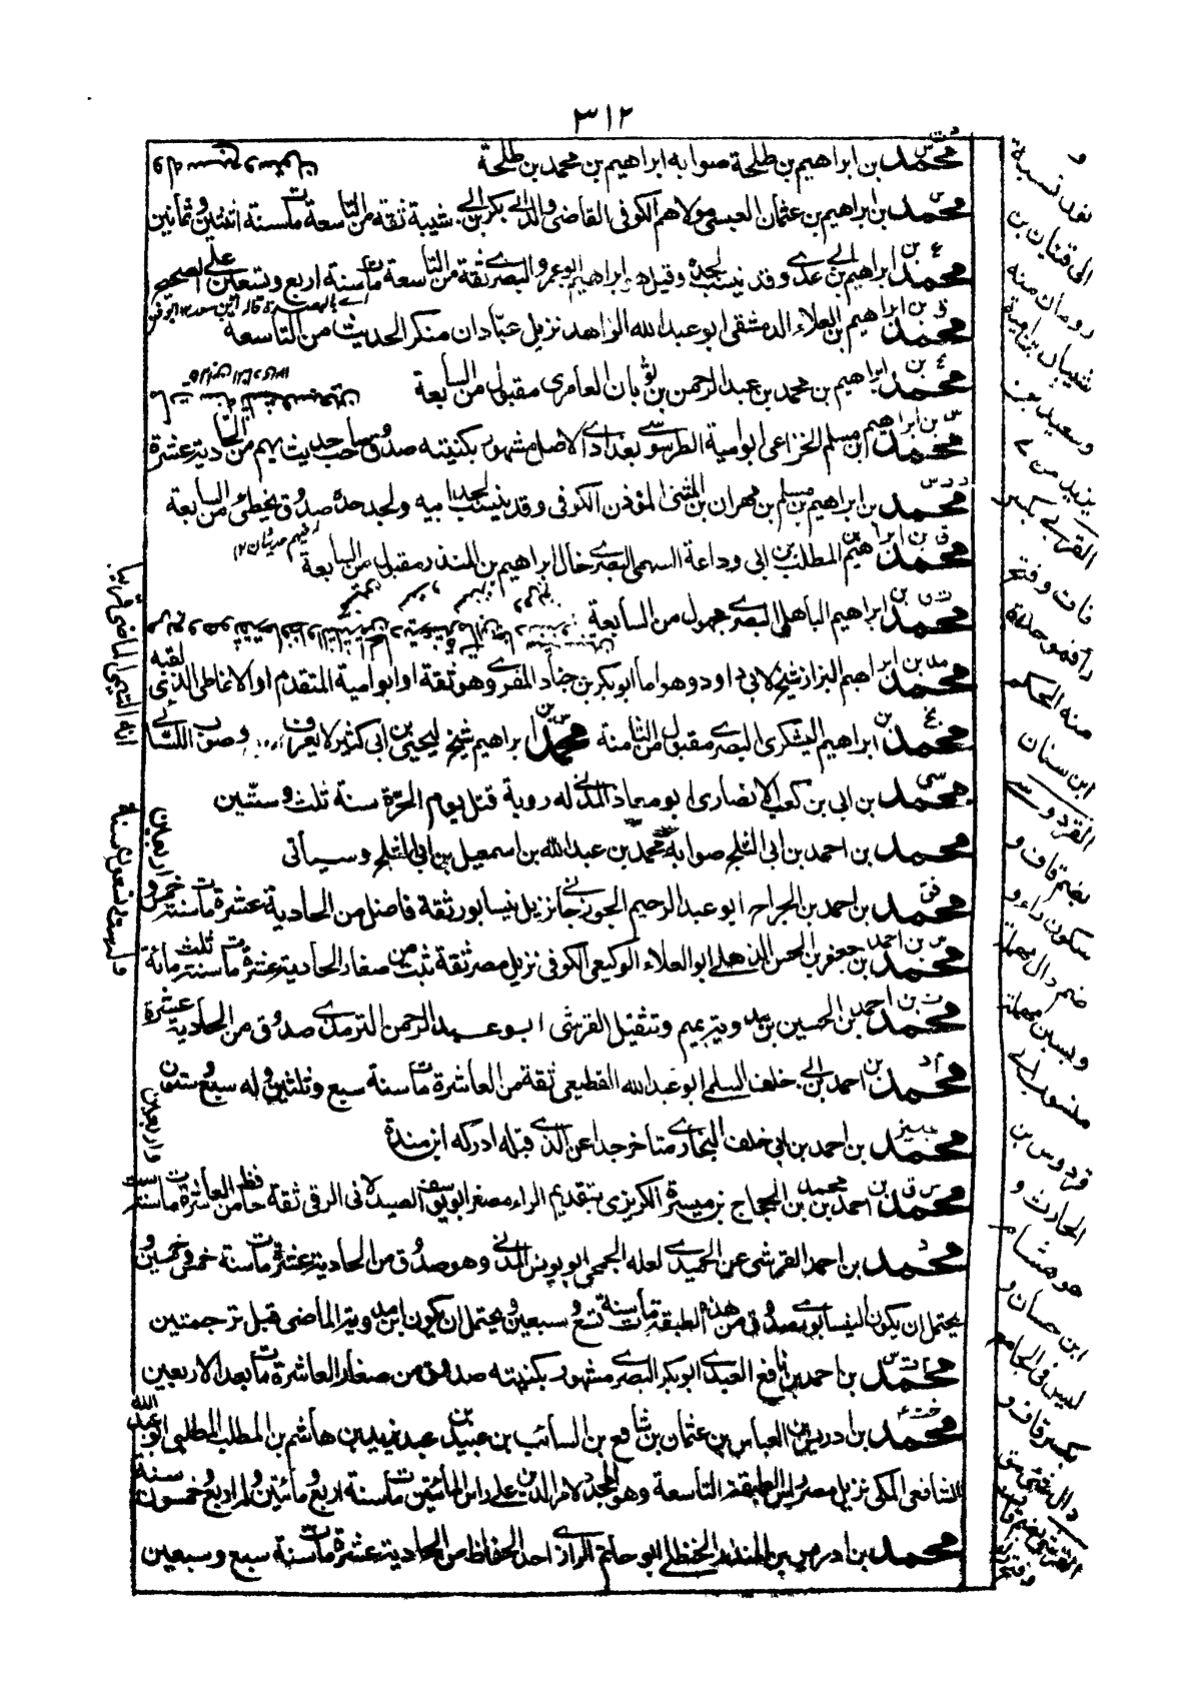 ٣١٢
محمد بن ابراهيم بن طلحة صوابه ابراهيم بن محمد بن طلحة
محمد بن ابراهيم بن عثمان العبسى مولاهم الكوفى القاضى والد ابى بكر بن ابى شيبة ثقة من التاسعة مات سنة اثنتين وثمانين
محمد بن ابراهيم بن ابى عدى وقد ينسب لجده وقيل هو ابراهيم ابو عمرو البصرى ثقة من التاسعة مات سنة اربع وتسعين على الصحيح
محمد بن ابراهيم بن العلاء الدمشقى ابو عبد الله الزاهد نزيل عبّادان منكر الحديث من التاسعة
محمد بن ابراهيم بن محمد بن عبد الرحمن بن ثوبان العامرى مقبول من السابعة
محمد بن ابراهيم ابن مسلم الخزاعى ابو امية الطرسوسى بغدادى الاصل مشهور بكنيته صدوق صاحب حديث يهم من الحادية عشرة
محمد بن ابراهيم بن مسلم بن مهران بن المثنى المؤذن الكوفى وقد ينسب لجد ابيه ولجد جده صدوق يخطئ من السابعة
محمد بن ابراهيم بن المطلب بن ابى وداعة السهمى البصرى خال ابراهيم بن المنذر مقبول من السابعة
محمد بن ابراهيم الباهلى البصرى مجهول من السابعة
محمد بن ابراهيم البزاز شيخ لابى داود وهو اما ابو بكر بن جناد المقرى وهو ثقة او ابو امية المتقدم او الانماطى الذى لقبه
محمد بن ابراهيم اليشكرى البصرى مقبول من الثامنة محمد بن ابراهيم شيخ ليحيى بن ابى كثير لا يعرف وصوب النسائى
محمد بن ابى بن كعب الانصارى ابو معاذ المدنى له روية قتل يوم الحرّة سنة ثلث وستّين
محمد بن احمد بن ابى الثلج صوابه محمد بن عبد الله بن اسمعيل بن ابى الثلج وسيأتى
محمد بن احمد بن الجراح ابو عبد الرحيم الجوزجانى نزيل نيسابور ثقة فاضل من الحادية عشرة مات سنة خمس و اربعين
محمد بن احمد بن جعفر بن الحسن الذهلى ابو العلاء الوكيعى الكوفى نزيل مصر ثقة ثبت من صغار الحادية عشرة مات سنة ثلث مائة
محمد بن احمد بن الحسين بن مدويه بميم وتثقيل القرشى ابو عبد الرحمن الترمذى صدوق من الحادية عشرة
محمد بن احمد بن ابى خلف السلمى ابو عبد الله القطيعى ثقة من العاشرة مات سنة سبع وثلثين وله سبع وستون
محمد بن احمد بن ابى خلف البخارى متاخر جدا عن الذى قبله ادركه ابن مندة
محمد بن احمد بن محمد بن الحجاج بن ميسرة الكريزى بتقديم الراء مصغر ابو يوسف الصيدلانى الرقى ثقة حافظ من العاشرة مات سنة ست واربعين
محمد بن احمد القرشى عن الحميدى لعله الجمحى ابو يونس المدنى وهو صدوق من الحادية عشرة مات سنة خمس وخمسين و
يحتمل ان يكون النيسابورى صدوق من هذه الطبقة مات سنة تسع وسبعين ويحتمل ان يكون ابن مدويه الماضى قبل ترجمتين
محمد بن احمد بن نافع العبدى ابو بكر البصرى مشهور بكنيته صدوق من صغار العاشرة مات بعد الاربعين
محمد بن ادريس بن العباس بن عثمان بن شافع بن السائب بن عبيد بن عبد يزيد بن هاشم بن المطلب المطلبى ابو عبد الله
الشافعى المكى نزيل مصر راس الطبقة التاسعة وهو المجدد لامر الدين على راس المائتين مات سنة اربع ومائتين وله اربع وخمسون سنة
محمد بن ادريس بن المنذر الحنظلى ابو حاتم الرازى احد الحفاظ من الحادية عشرة مات سنة سبع وسبعين
نون نسبة
الى قتبان بن
رومان منه
وسعيد بن
يزيد من ٧
قاف وفتح
منه الحكم
ابن سنان
القردوسى
بضم قاف و
سكون راء و
ضم دال مهملة
وبسين مهملة
منسوب الى
قردوس بن
الحارث و
هو هشام
ابن حسان و
ليس فى الجامع
بكسر قاف و